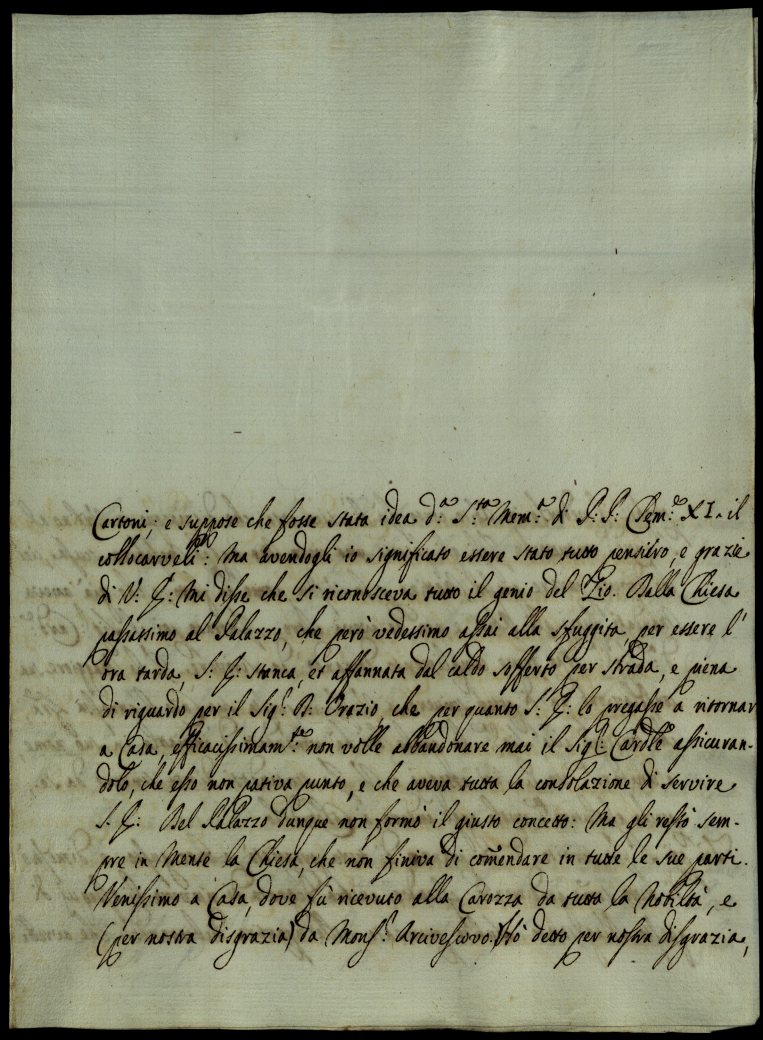 Cartoni; e suppose che fosse stata idea d:ª S:ta Mem:ª di P: P: Clem:e XI. il
collocarveli: Ma avendogli io significato essere stato tutto pensiero, e grazie
di V: E: Mi disse che si riconosceva tutto il genio del Zio. Dalla Chiesa
passassimo al Palazzo, che però vedessimo assai alla sfuggita, per essere l'
ora tarda, S: E: stanca, et affannata dal caldo sofferto per strada, e piena
di riguardo per il Sig:r D: Orazio, che per quanto S: E: lo pregasse a ritornar
a Casa, efficacissimam:te non volle abbandonare mai il Sig:r Cardle assicuran-
dolo, che esso non pativa punto, e che aveva tutta la consolazione di servire
S. E: Del Palazzo dunque non formò il giusto concetto: Ma gli restò sem-
pre in Mente la Chiesa, che non finiva di com̃endare in tutte le sue parti.
Venissimo a Casa, dove fù ricevuto alla Carozza da tutta la Nobiltà, e
(per nostra disgrazia) da Mons:r Arcivescovo. Hò detto per nostra disgrazia,